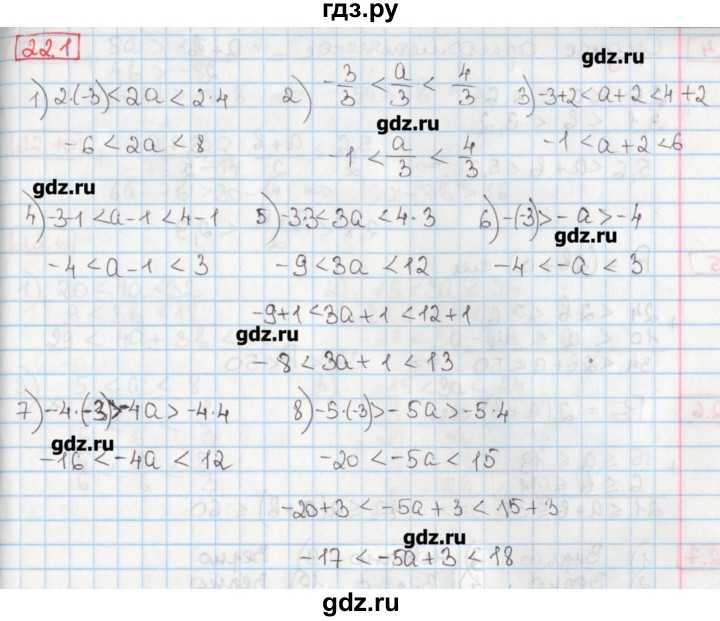 гдз.ру
22.1
гдз.ру
1) 2·(-3) < 2a < 2·4
2) -3/3 < a/3 < 4/3
3) -3+2 < a+2 < 4+2
гдз.ру
-6 < 2a < 8
-1 < a/3 < 4/3
-1 < a+2 < 6
gdz.ru
4) -3-1 < a-1 < 4-1
5) -3·3 < 3a < 4·3
6) -(-3) > -a > -4
gdz.ru
-4 < a-1 < 3
-9 < 3a < 12
-4 < -a < 3
-9+1 < 3a+1 < 12+1
gdz.ru
-8 < 3a+1 < 13
7) -4·(-3) > -4a > -4·4
8) -5·(-3) > -5a > -5·4
gdz.ru
-16 < -4a < 12
-20 < -5a < 15
-20+3 < -5a+3 < 15+3
gdz.ru
-17 < -5a+3 < 18
gdz.ru